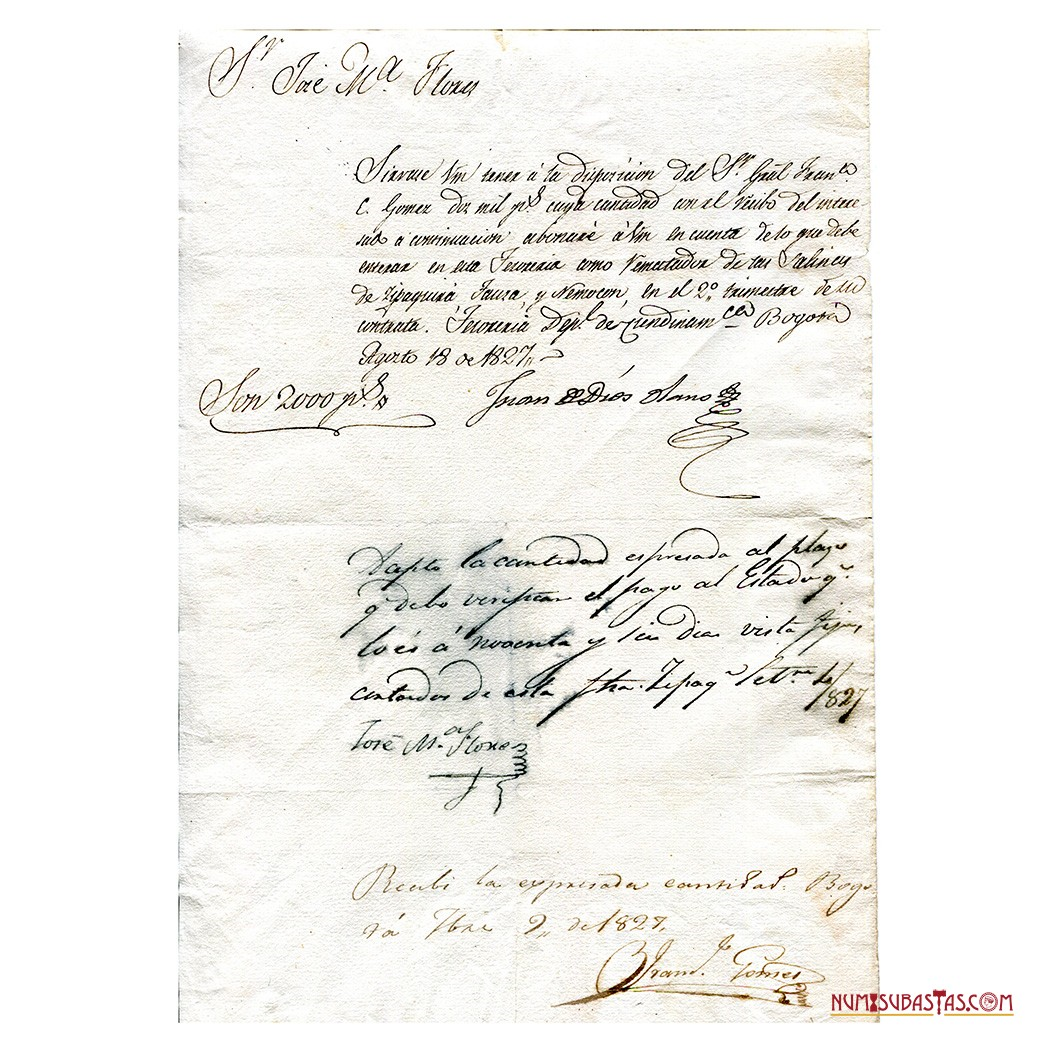 Sr. José Ma. Flores
Sirvase Vm tener á la disposicion del Sr. Gral Franco.
C. Gomez dos mil ps. cuya cantidad con el recibo del intere
sado a continuacion abonaré á Vm en cuenta de lo que debe
enterar en esta Tesoreria como rematador de las Salinas
de Zipaquirá Tausa, y Nemocon, en el 2º. trimestre de su
contrata. Tesoreria Depl. de Cundinamca. Bogotá
Agosto 18 de 1827,,
Son 2000 ps.
Juan de Dios Olano
la cantidad espresada al plazo
q. debo verificar el pago al Estado q.
lo és á noventa y seis dias vista
contados de esta fha. Zipaqa.
1827
José Ma. Flores
Recibi la expresada cantidad. Bogo
tá 7bre 9,, de 1827,,
Frano. Gomez
NUMISUBASTAS.COM